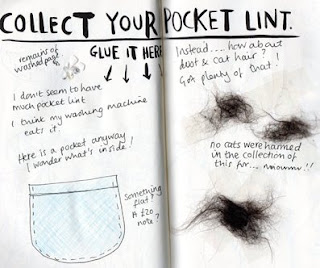 COLLECT YOUR POCKET LINT.
GLUE IT HERE
remains of
washed page
I don't seem to have
much pocket lint
I think my washing machine
eats it.
Here is a pocket anyway
I wonder what's inside!
Something
flat?
A £20
note?
Instead.... how about
dust & cat hair?!
Got plenty of that!
no cats were harmed
in the collection of
this fur... miouww!!